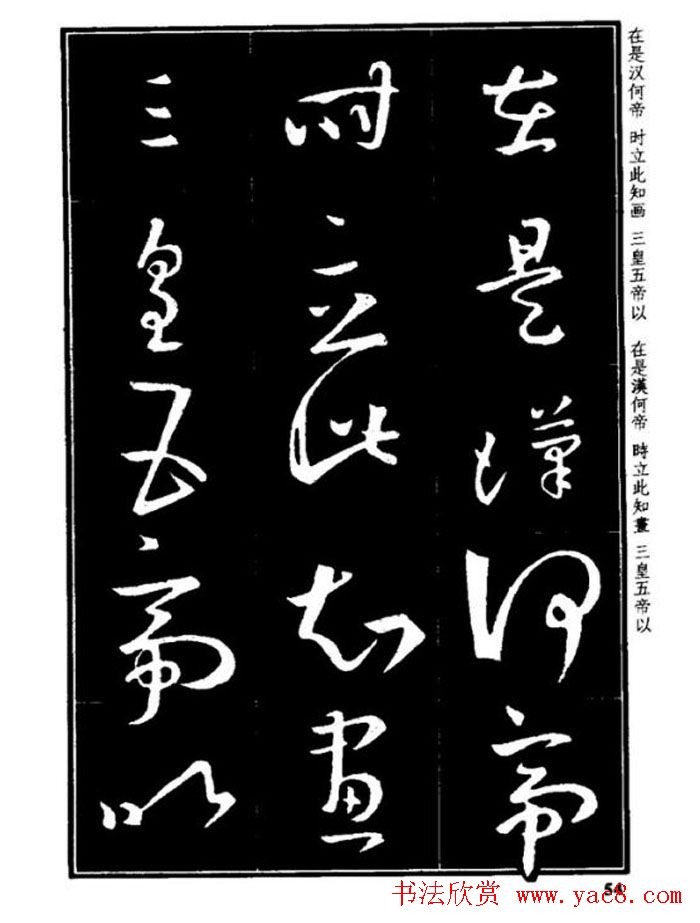 在是漢何帝
時立此知畫
三皇五帝以
在是汉何帝 时立此知画 三皇五帝以 在是漢何帝 時立此知畫 三皇五帝以
54
书法欣赏 www.yac8.com